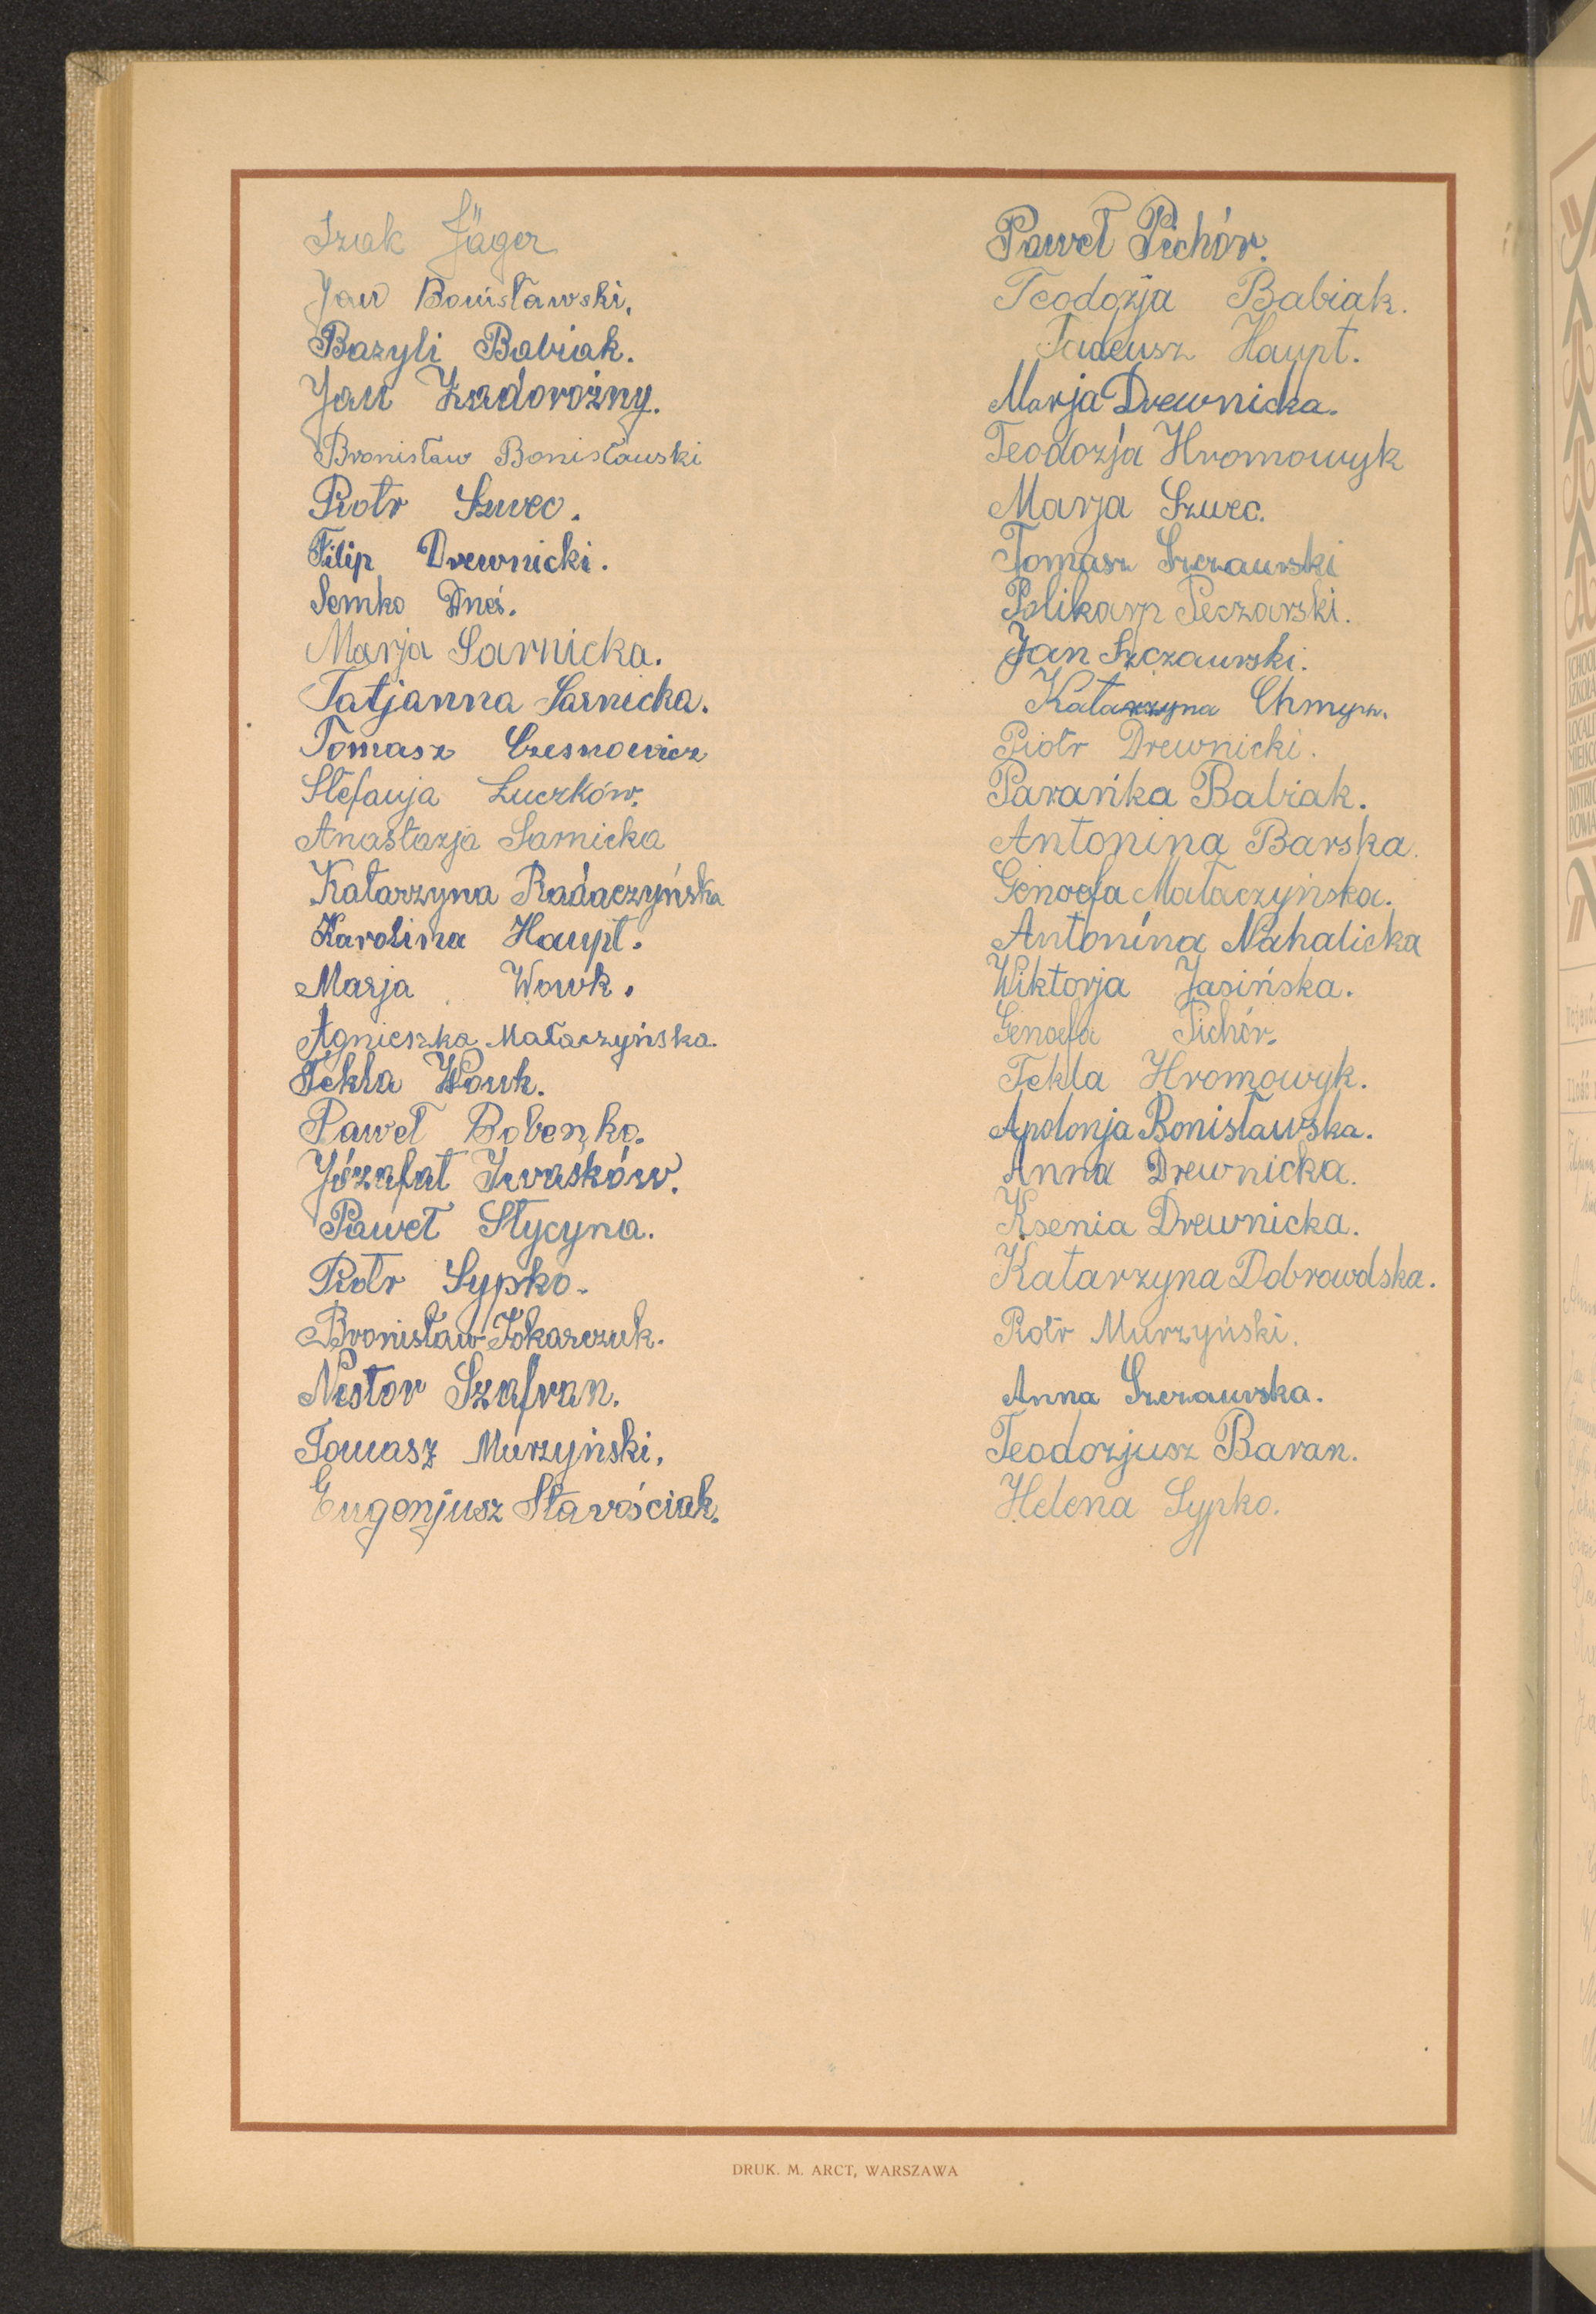 Izak Jäger
Jan Bonisławski.
Bazyli Babiak.
Jan Zadorożny.
Bronisław Bonisławski
Piotr Szwec.
Filip Drewnicki.
Semko Dneś.
Marja Sarnicka.
Tatjanna Sarnicka.
Tomasz Czesnowicz
Stefanja Łuczków.
Anastazja Sarnicka
Katarzyna Radaczyńska
Karolina Haupt.
Marja Wowk.
Agnieszka Małaczyńska.
Tekla Wowk.
Paweł Bobenko.
Józafat Iwaśków.
Paweł Stycyna.
Piotr Sypko.
Bronisław Tokarczuk.
Nestor Szafran.
Tomasz Murzyński.
Eugenjusz Starościak.
Paweł Pichór.
Teodozja Babiak.
Tadeusz Haupt.
Marja Drewnicka.
Teodozja Hromowyk
Marja Szwec.
Tomasz Szczawski
Polikarp Peczarski.
Jan Szczawski.
Katarzyna Chmyr.
Piotr Drewnicki.
Parańka Babiak.
Antonina Barska.
Genoefa Małaczyńska.
Antonina Nahalicka
Wiktorja Jasińska.
Genoefa Pichór.
Tekla Hromowyk.
Apolonja Bonisławska.
Anna Drewnicka.
Ksenia Drewnicka.
Katarzyna Dobrowolska.
Piotr Murzyński.
Anna Szczawska.
Teodozjusz Baran.
Helena Sypko.
DRUK. M. ARCT, WARSZAWA